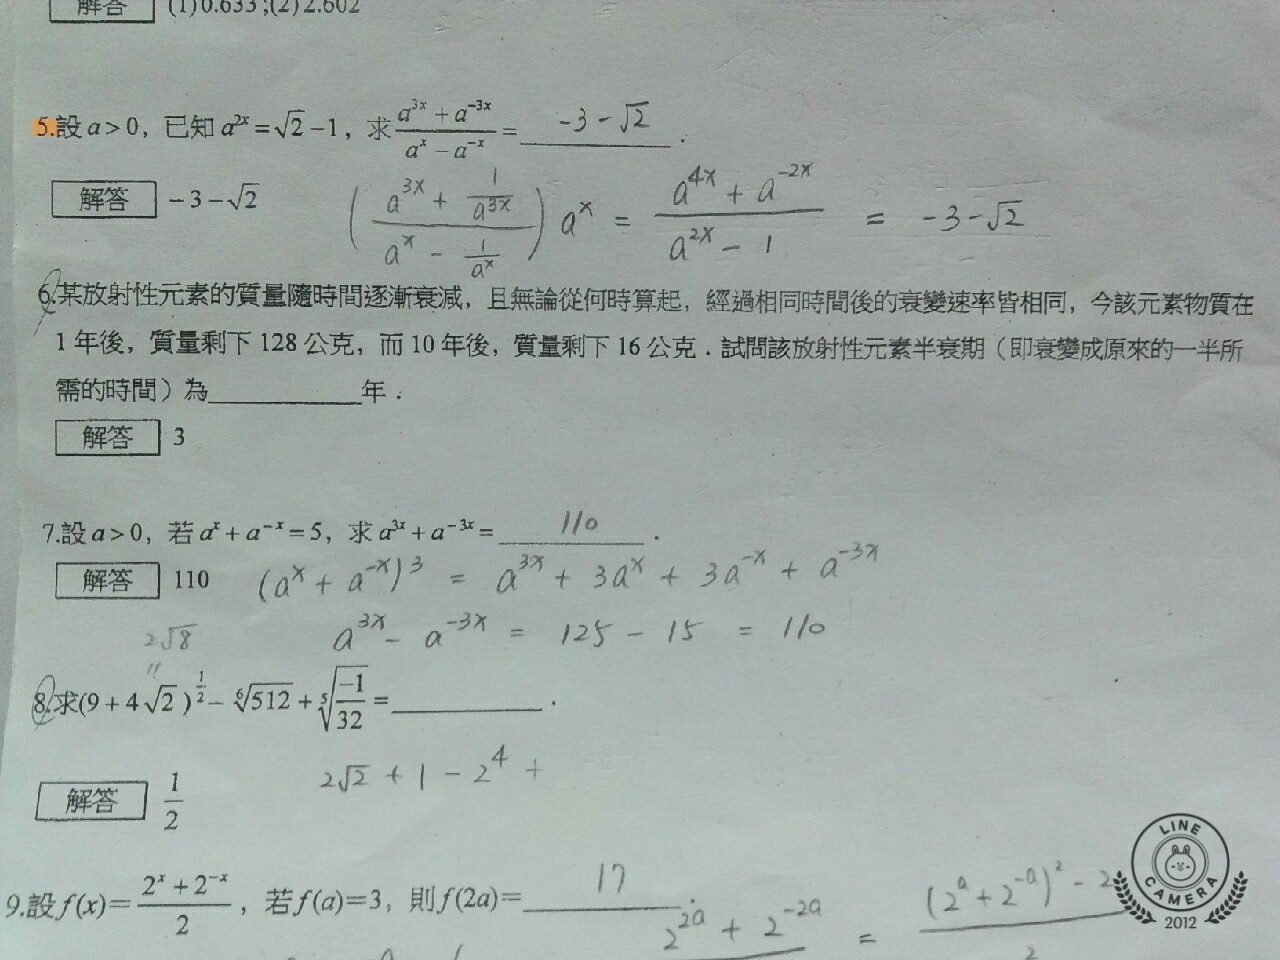 解答 (1)0.633;(2)2.602
5.設 a > 0，已知 a^{2x} = √2 − 1，求 (a^{3x} + a^{-3x})/(a^x − a^{-x}) = -3-√2 .
解答 −3−√2 ((a^{3x} + 1/a^{3x})/(a^x - 1/a^x)) a^x = (a^{4x} + a^{-2x})/(a^{2x} - 1) = -3-√2
6.某放射性元素的質量隨時間逐漸衰減，且無論從何時算起，經過相同時間後的衰變速率皆相同，今該元素物質在
1 年後，質量剩下 128 公克，而 10 年後，質量剩下 16 公克．試問該放射性元素半衰期（即衰變成原來的一半所
需的時間）為____________年．
解答 3
7.設 a > 0，若 a^x + a^{-x} = 5，求 a^{3x} + a^{-3x} = 110 .
解答 110 (a^x + a^{-x})^3 = a^{3x} + 3a^x + 3a^{-x} + a^{-3x}
2√8 a^{3x} - a^{-3x} = 125 - 15 = 110
"
8.求(9 + 4√2)^{1/2} − ⁶√512 + ⁵√(−1/32) = ____________ .
2√2 + 1 - 2^4 +
解答 1/2
9.設 f(x) = (2^x + 2^{-x})/2，若 f(a)=3，則 f(2a)= 17 .
2^{2a} + 2^{-2a} = (2^a + 2^{-a})^2 - 2
LINE
CAMERA
2012